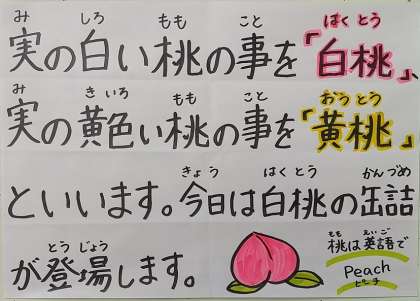 み しろ もも こと はくとう
実の白い桃の事を「白桃」、
み きいろ もも こと おうとう
実の黄色い桃の事を「黄桃」
きょう はくとう かんづめ
といいます。今日は白桃の缶詰
とうじょう
が登場します。
もも えいご
桃は英語で
Peach
ピーチ